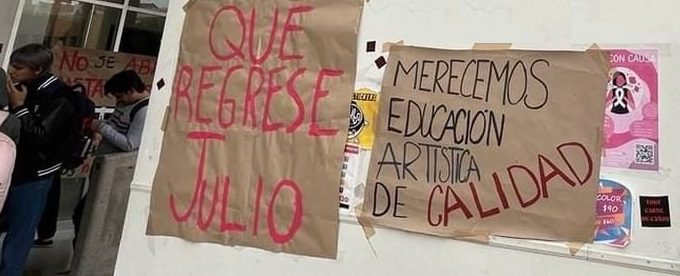 NO SE AB
QUE
REGRESE
JULIO
MERECEMOS
EDUCACIÓN
ARTÍSTICA
DE CALIDAD
CON CAUSA
COLOR
$90
TODO